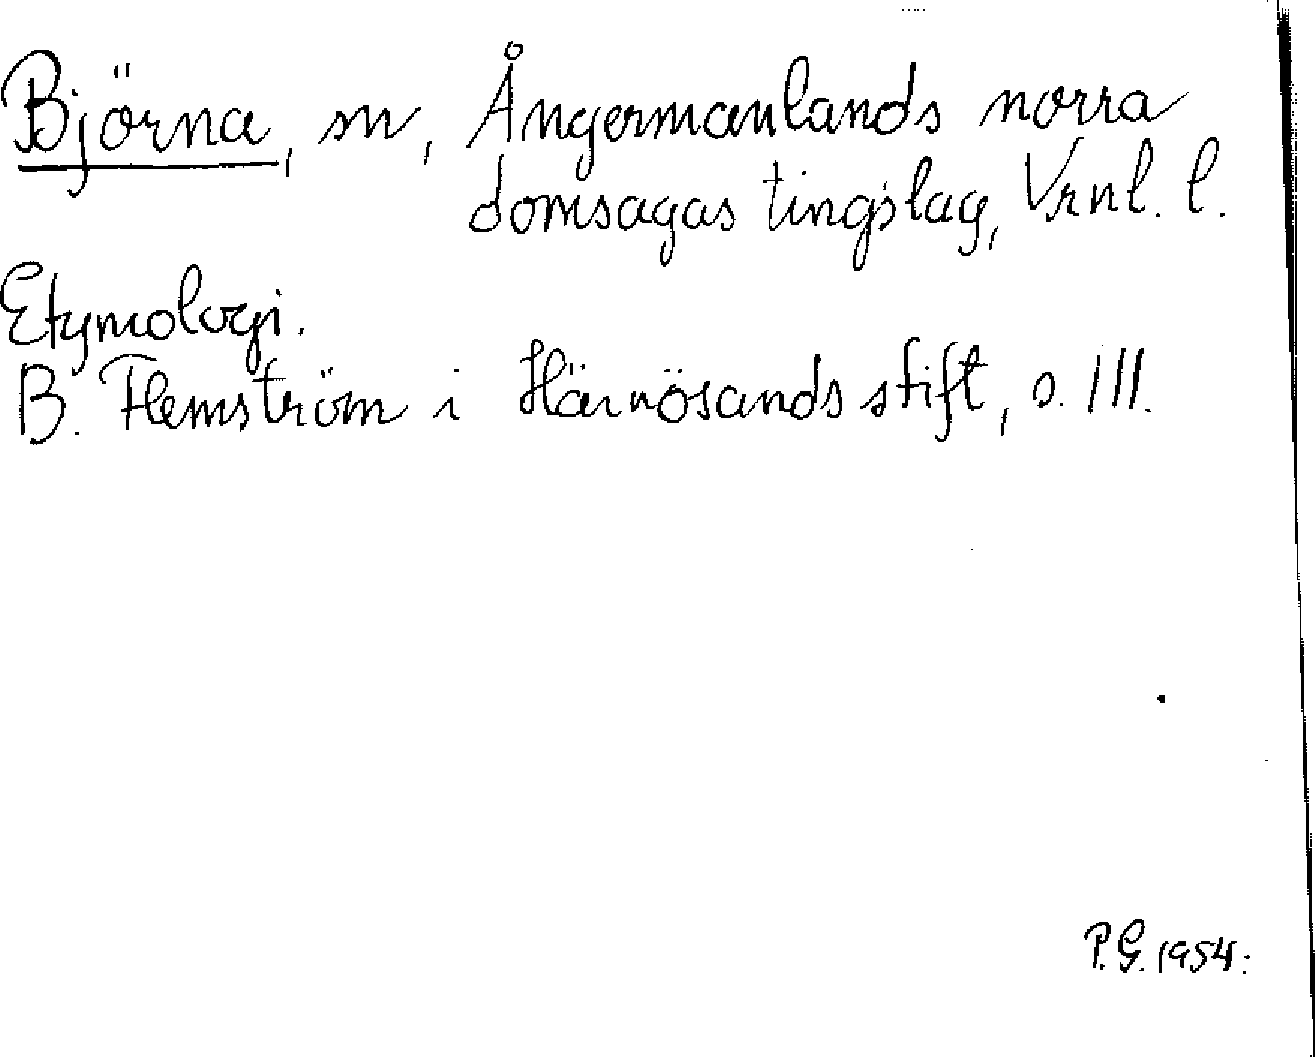 Björna, sn, Ångermanlands norra
domsagas tingslag, Vrnl. l.
Etymologi.
B. Flemström i Härnösands stift, s. 111.
P.G. 1954.